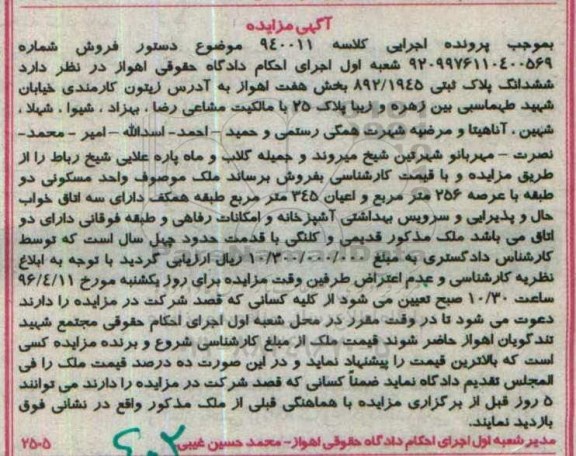 آگهی مزایده
بموجب پرونده اجرایی کلاسه ۹۴۰۰۱۱ موضوع دستور فروش شماره
۹۲۰۹۹۷۶۱۱۰۴۰۰۵۶۹ شعبه اول اجرای احکام دادگاه حقوقی اهواز در نظر دارد
ششدانگ پلاک ثبتی ۸۹۲/۱۹۴۵ بخش هفت اهواز به آدرس زیتون کارمندی خیابان
شهید طهماسبی بین زهره و زیبا پلاک ۲۵ با مالکیت مشاعی رضا ، بهزاد ، شیوا ، شهلا ،
شهین ، آناهیتا و مرضیه شهرت همگی رستمی و حمید – احمد- اسدالله – امیر – محمد-
نصرت – مهربانو شهرتین شیخ میروند و جمیله گلاب و ماه پاره علایی شیخ رباط را از
طریق مزایده و با قیمت کارشناسی بفروش برساند ملک موصوف واحد مسکونی دو
طبقه با عرصه ۲۵۶ متر مربع و اعیان ۳۴۵ متر مربع طبقه همکف دارای سه اتاق خواب
حال و پذیرایی و سرویس بهداشتی آشپزخانه و امکانات رفاهی و طبقه فوقانی دارای دو
اتاق می باشد ملک مذکور قدیمی و کلنگی با قدمت حدود چهل سال است که توسط
کارشناس دادگستری به مبلغ ۱۰/۳۰۰/۰۰۰/۰۰۰ ریال ارزیابی گردید با توجه به ابلاغ
نظریه کارشناسی و عدم اعتراض طرفین وقت مزایده برای روز یکشنبه مورخ ۹۶/۴/۱۱
ساعت ۱۰/۳۰ صبح تعیین می شود از کلیه کسانی که قصد شرکت در مزایده را دارند
دعوت می شود تا در وقت مقرر در محل شعبه اول اجرای احکام حقوقی مجتمع شهید
تندگویان اهواز حاضر شوند قیمت ملک از مبلغ کارشناسی شروع و برنده مزایده کسی
است که بالاترین قیمت را پیشنهاد نماید و در این صورت ده درصد قیمت ملک را فی
المجلس تقدیم دادگاه نماید ضمناً کسانی که قصد شرکت در مزایده را دارند می توانند
۵ روز قبل از برگزاری مزایده با هماهنگی قبلی از ملک مذکور واقع در نشانی فوق
بازدید نمایند.
مدیر شعبه اول اجرای احکام دادگاه حقوقی اهواز- محمد حسین غیبی
۲۵۰۵